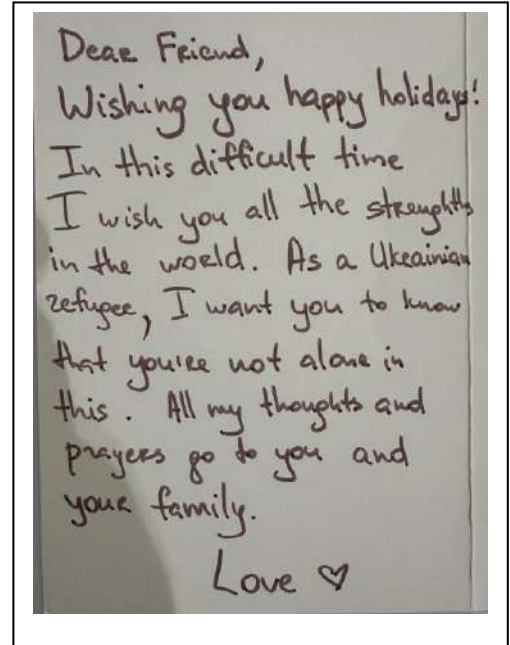 Dear Friend,
Wishing you happy holidays!
In this difficult time
I wish you all the strenghths
in the world. As a Ukrainian
refugee, I want you to know
that you're not alone in
this. All my thoughts and
prayers go to you and
your family.
Love ♡